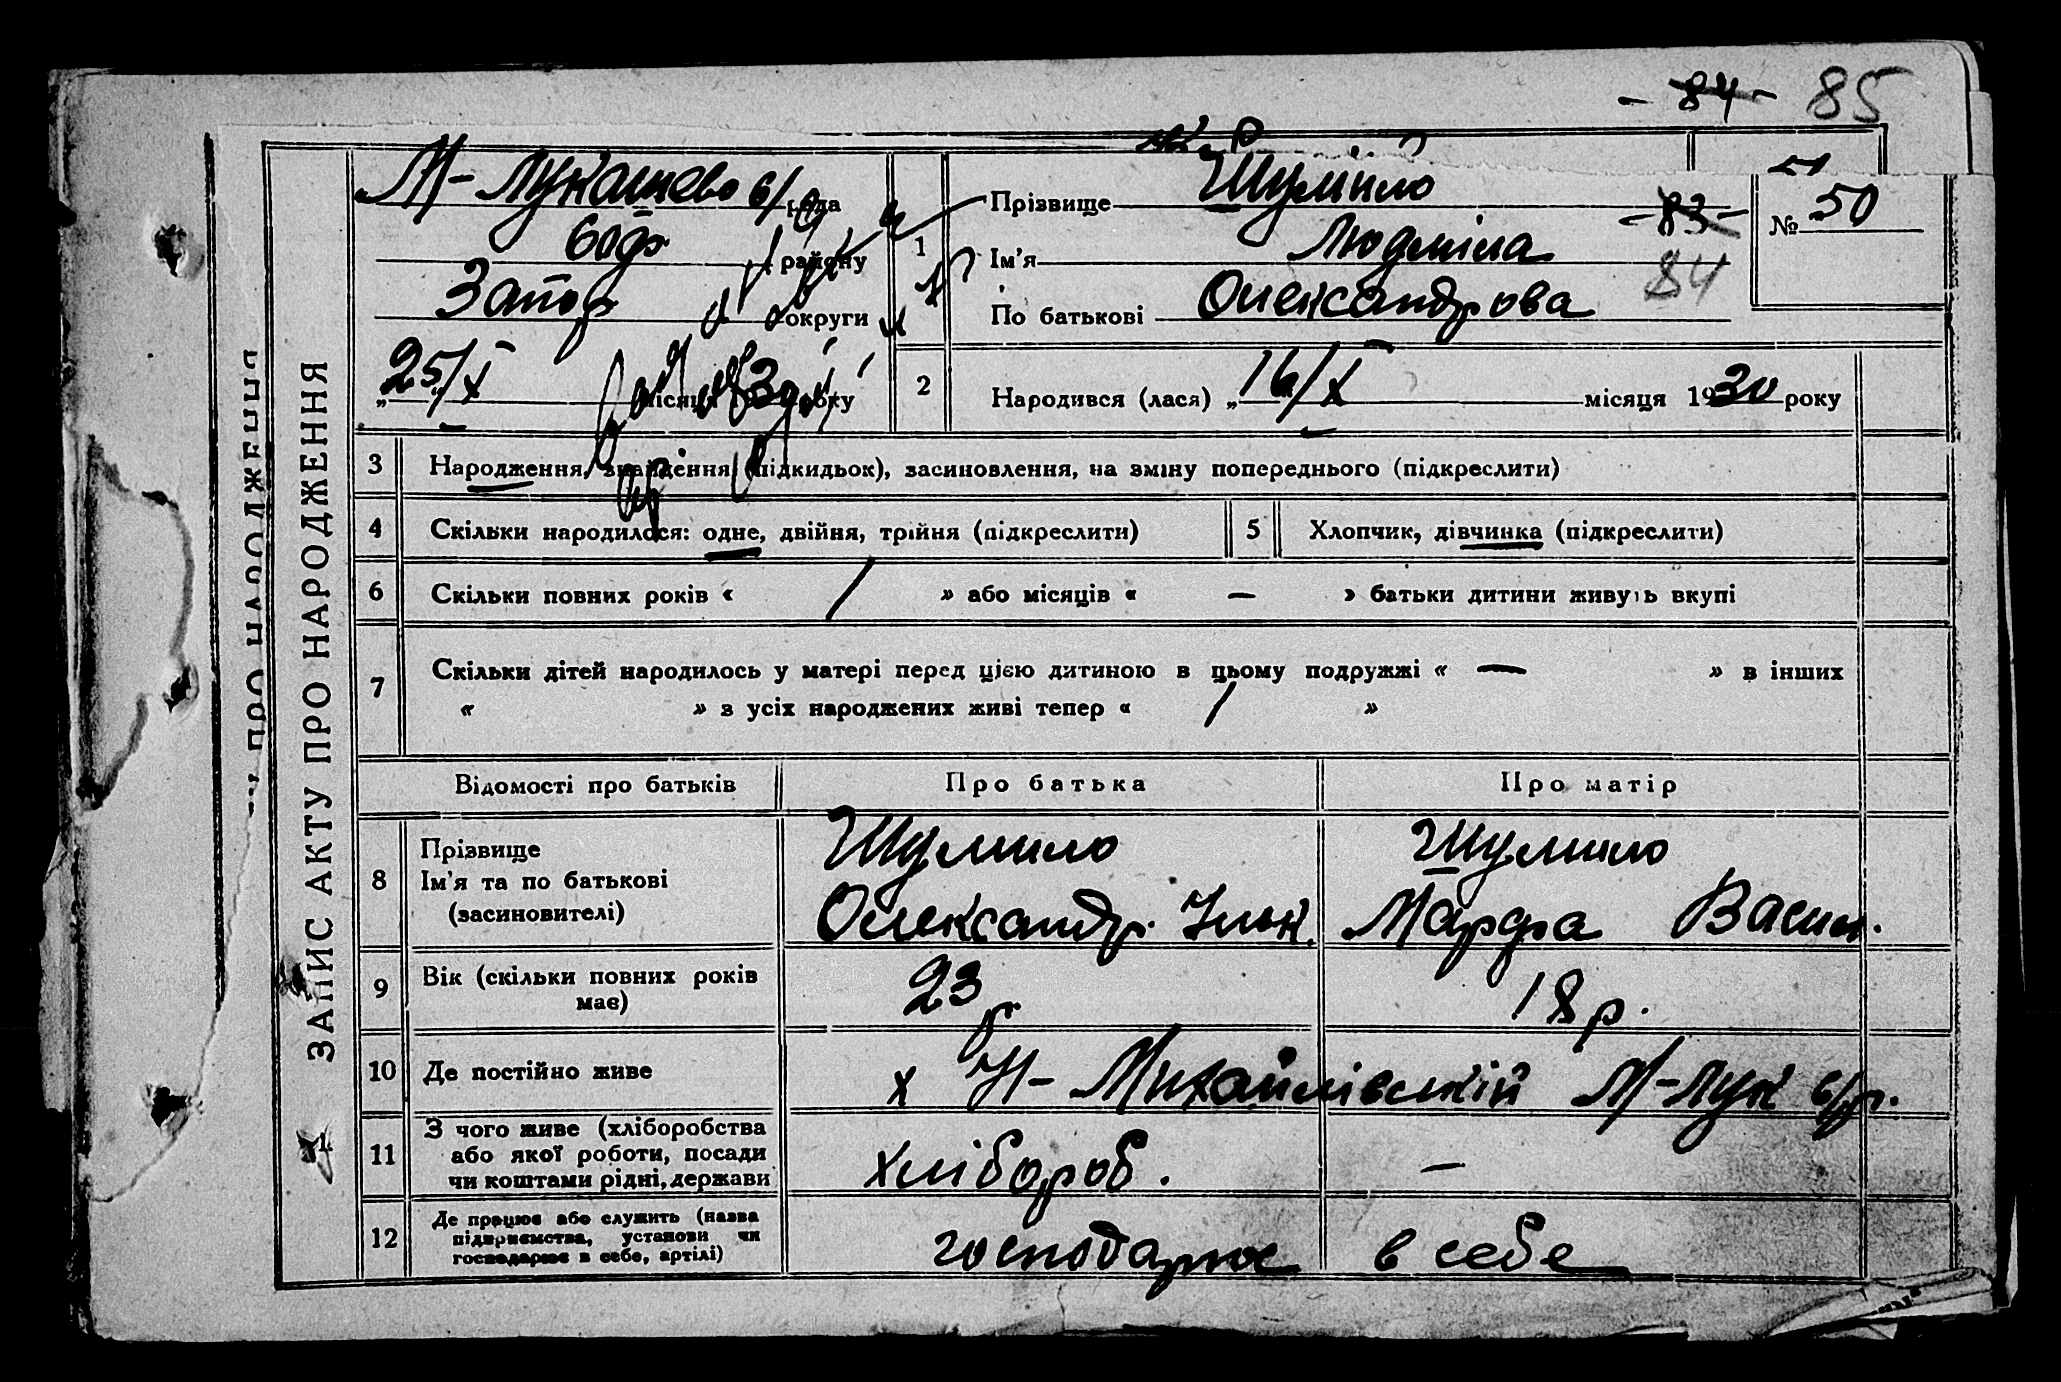 - 84 - 85
М-Лукашево с/рада
Софі району
Запор округи
25/X місяця 1930 року
1
Прізвище Шумило
- 83 -
Ім'я Людміла
84
По батькові Олександрова
№ 50
2
Народився (лася) „ 16/X місяця 1930 року
ЗАПИС АКТУ ПРО НАРОДЖЕННЯ
3 Народження, знайдення (підкидьок), засиновлення, на зміну попереднього (підкреслити)
4 Скільки народилося: одне, двійня, трійня (підкреслити)
5 Хлопчик, дівчинка (підкреслити)
6 Скільки повних років « / » або місяців « — » батьки дитини живуть вкупі
7 Скільки дітей народилось у матері перед цією дитиною в цьому подружжі « — » в інших
« » з усіх народжених живі тепер « / »
Відомості про батьків Про батька Про матір
8 Прізвище
Ім'я та по батькові
(засиновителі)
Шумило
Олександр. Ільк.
Шумило
Марфа Васил.
9 Вік (скільки повних років
має)
23 р
18 р.
10 Де постійно живе
х Н-Михайлівський М-Лук с/р.
11 З чого живе (хліборобства
або якої роботи, посади
чи коштами рідні, держави
хлібороб. —
12 Де працює або служить (назва
підприємства, установи чи
господарює в себе, артілі)
господарює в себе